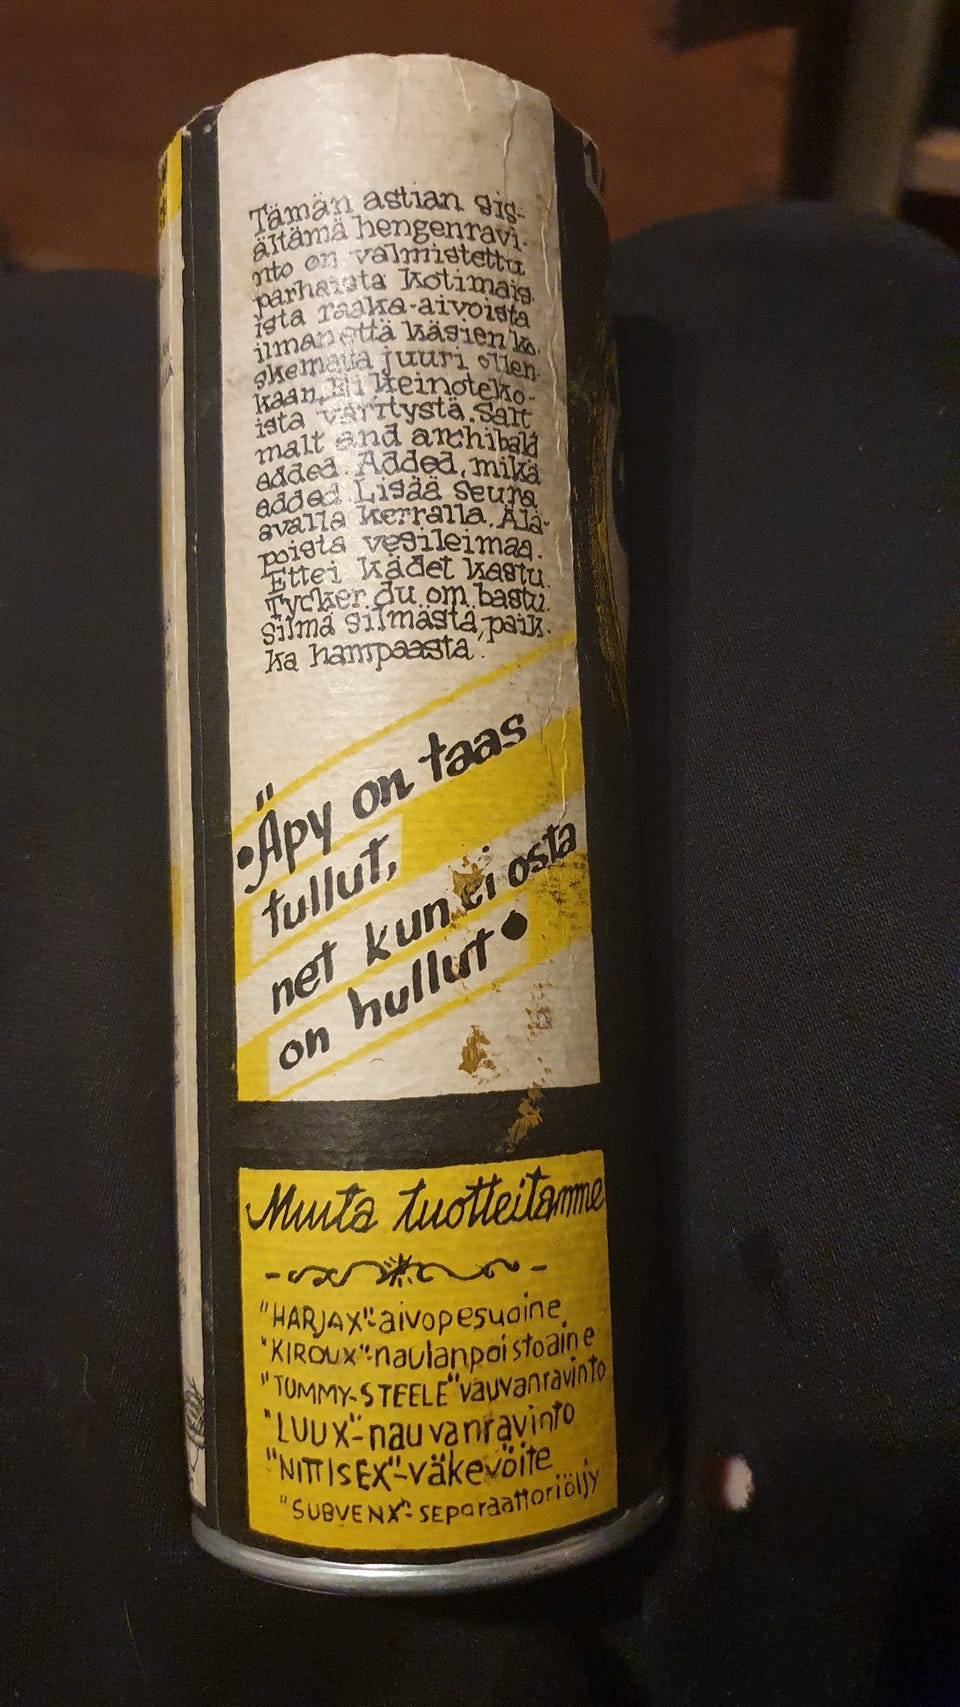 Tämän astian sis-
ältämä hengenravi-
nto on valmistettu
parhaista kotimais-
ista raaka-aivoista
ilman että käsien ko-
skematta juuri ollen-
kaan. Ei keinoteko-
ista väritystä. Salt
malt and archibald
added. Added, mikä
added. Lisää seura
avalla kerralla. Älä-
poista vesileimaa.
Ettei kädet kastu.
Tycker du om bastu.
Silmä silmästä, paik-
ka hampaasta.
•Äpy on taas
tullut,
net kun ei osta
on hullut•
Muita tuotteitamme
"HARJAX"-aivopesuaine
"KIROUX"-naulanpoistoaine
"TOMMY-STEELE"vauvanravinto
"LUUX"-nauvanravinto
"NITTISEX"-väkevöite
"SUBVENX"-separaattoriöljy